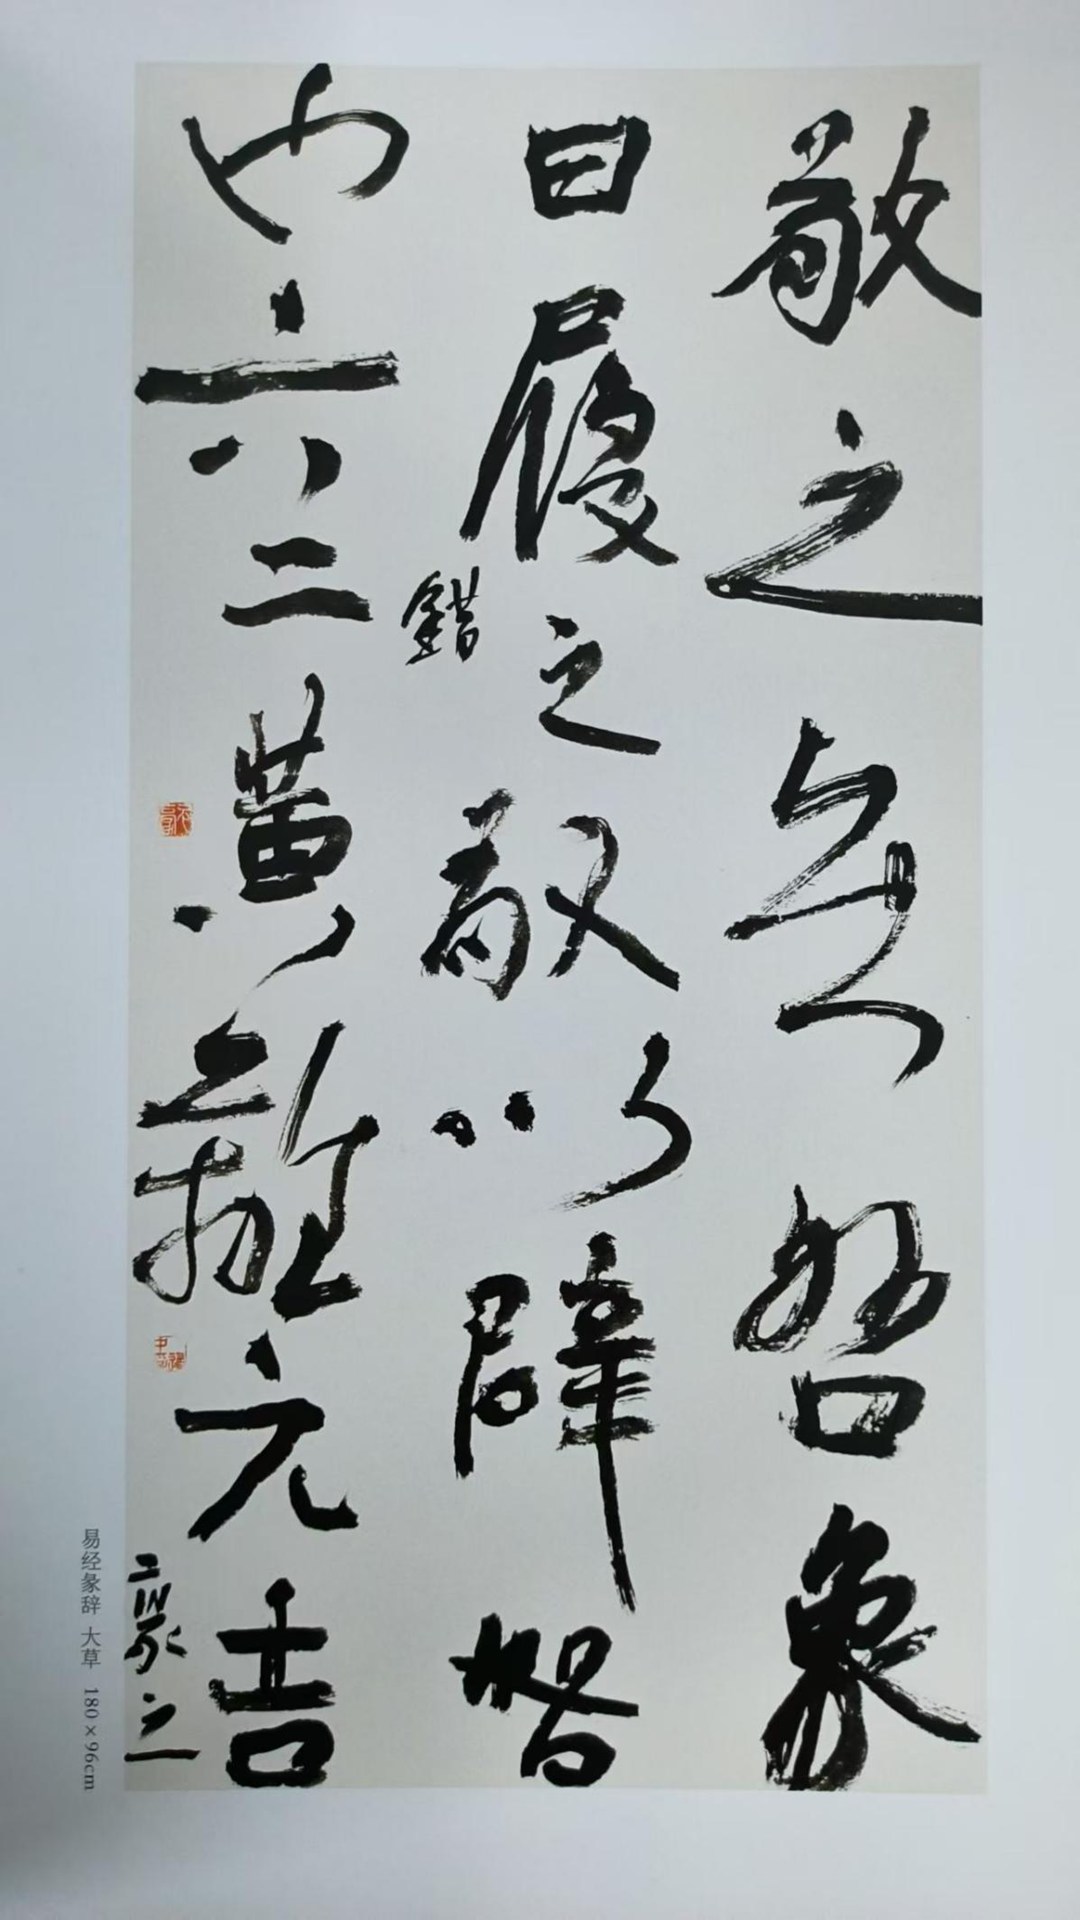 敬之無咎象
曰履錯之敬以辟咎
也六二黄離元吉
易经彖辞 大草 180×96cm